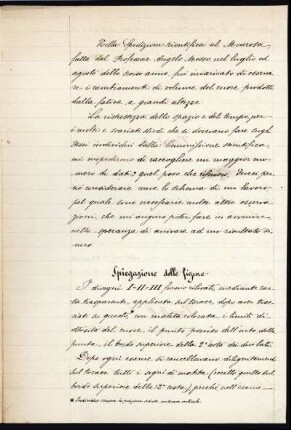 Nella Spedizione scientifica al Monterosa
fatta dal Professore Angelo Mosso nel luglio ed
agosto dello stesso anno, fui incaricato di osserva-
re i cambiamenti di volume del cuore prodotti
dalla fatica a grandi altezze.
La ristrettezza dello spazio e del tempo, per
i molti e svariati studi che si dovevano fare sugli
stessi individui dalla Commissione scientifica
mi impedirono di raccogliere un maggior nu-
mero di dati; quel poco che riferisco, devesi per-
ciò considerare come lo schema di un lavoro
pel quale sono necessarie molte altre osserva-
zioni, che mi auguro poter fare in avvenire
nella speranza di arrivare ad un risultato si-
curo.
Spiegazione delle figure
I disegni I-II-III furono rilevati, mediante car-
ta trasparente, applicata sul torace, dopo aver trac-
ciato su questo, con matita colorata, i limiti di
ottusità del cuore, il punto preciso dell'urto della
punta, il bordo superiore della 2ª costa dei due lati.
Dopo ogni esame si cancellavano diligentemente
sul torace tutti i segni di matita (eccetto quello sul
bordo superiore della 2ª costa), perchè nell'esame